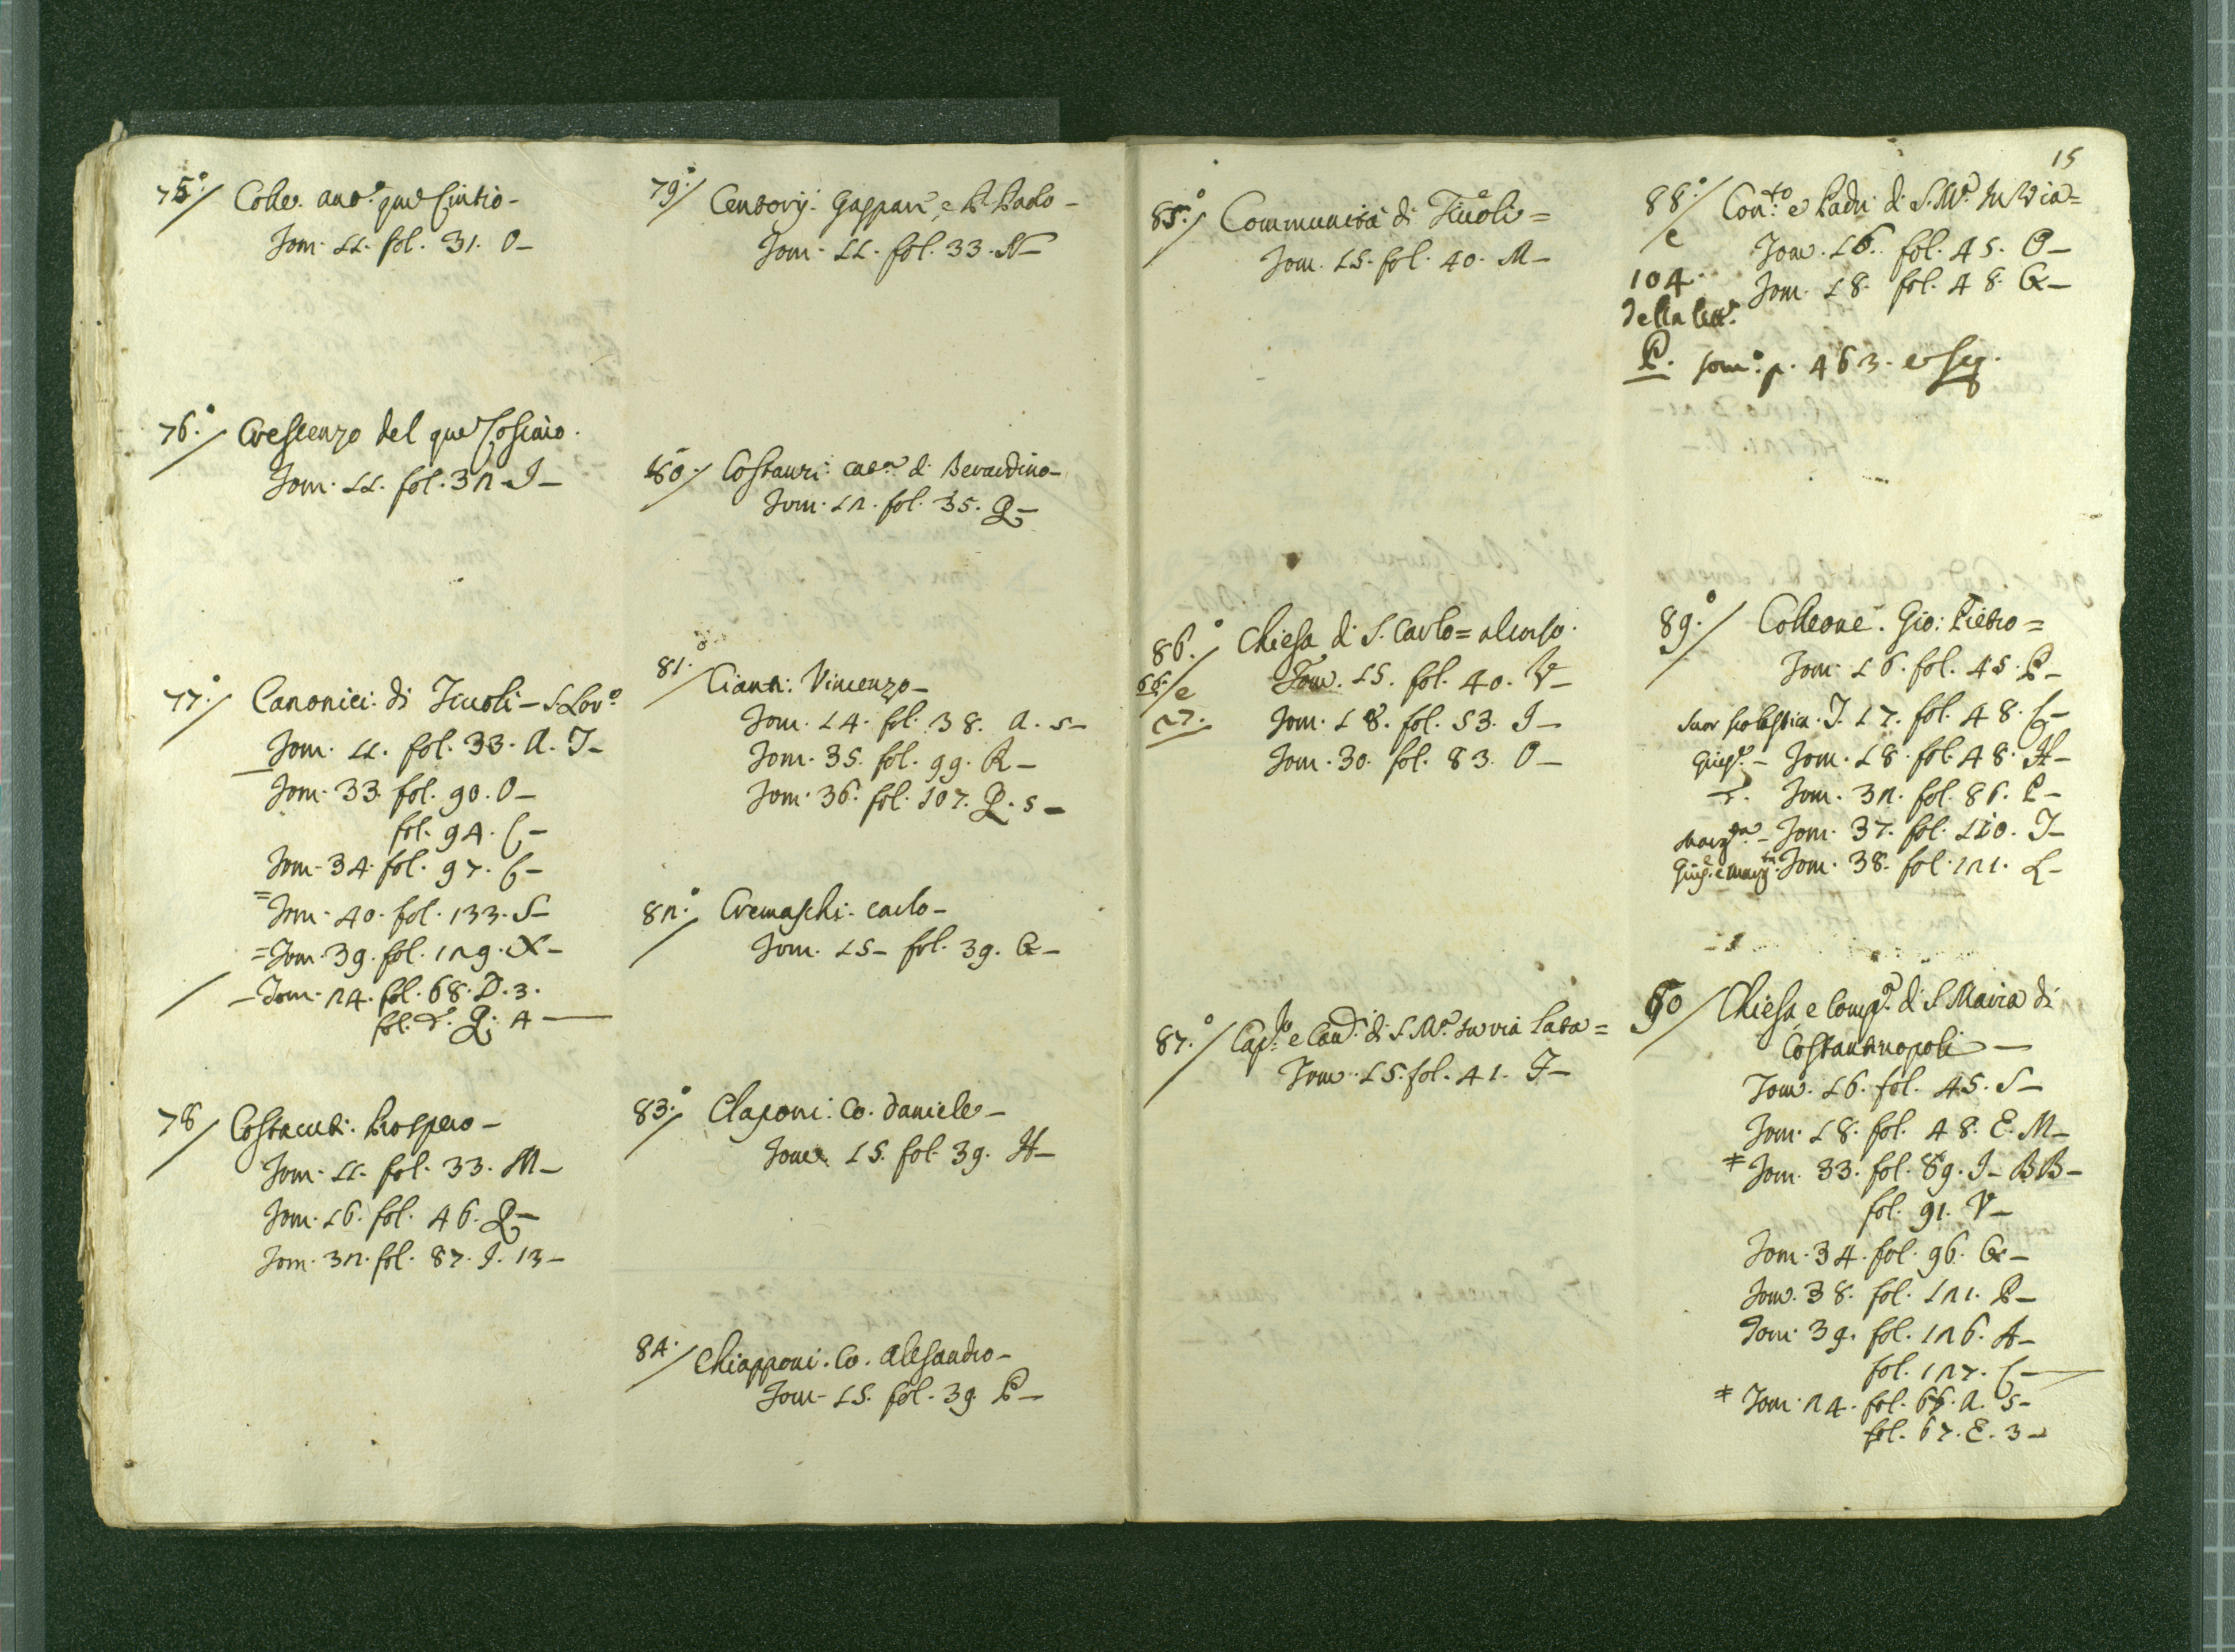 75.° Colle. Ant.° qm Cintio -
Tom. 11. fol. 31. O -
76.° Crescenzo del qm Cosimo.
Tom. 11. fol. 32. I -
77.° Canonici di Tiuoli - S. Lor.°
Tom. 11. fol. 33. A. T -
Tom. 33. fol. 90. O -
fol. 94. C -
Tom. 34. fol. 97. G -
= Tom. 40. fol. 133. S -
= Tom. 39. fol. 129. X -
- Tom. 24. fol. 68. D. 3.
fol. d.° Q. 4 -
78 Costacuti. Prospero -
Tom. 11. fol. 33. M -
Tom. 16. fol. 46. Q -
Tom. 32. fol. 87. I. 13 -
79.° Centorij. Gaspari, e P. Paolo -
Tom. 11. fol. 33. N -
80.° Costauri: di Berardino -
Tom. 12. fol. 35. Q -
81.° Cianti: Vincenzo -
Tom. 14. fol. 38. A. 5 -
Tom. 35. fol. 99. R -
Tom. 36. fol. 107. Q. 5 -
82.° Cremaschi. Carlo -
Tom. 15 - fol. 39. G -
83.° Claponi: Co. Daniele -
Tom. 15. fol. 39. H -
84. Chiapponi. Co. Alesandro -
Tom. 15. fol. 39. P -
15
85.° Communità di Tiuoli =
Tom. 15. fol. 40. M -
86.° Chiesa di S. Carlo = al Corso.
66. e Tom. 15. fol. 40. V -
27. Tom. 18. fol. 53. I -
Tom. 30. fol. 83. O -
87.° Cap.lo e Can.ci di S. M.a In via Lata =
Tom. 15. fol. 41. I -
88.° Con.to e Padri di S. M.a In Via =
e Tom. 16. fol. 45. O -
104. Tom. 18. fol. 48. G -
della lett.a
P. tom.° p. 463. e seg.
89.° Colleone. Gio: Pietro =
Tom. 16. fol. 45. P -
Suor Scolastica. T. 17. fol. 48. C -
Giusp.e - Tom. 18. fol. 48. H -
d.° Tom. 32. fol. 86. P -
Marg.ta - Tom. 37. fol. 110. I -
Giusp. e Marg.ta Tom. 38. fol. 121. L -
90 Chiesa e Comp.a di S. Maria di
Costantinopoli -
Tom. 16. fol. 45. S -
Tom. 18. fol. 48. E. M -
* Tom. 33. fol. 89. I - BB -
fol. 91. V -
Tom. 34. fol. 96. G -
Tom. 38. fol. 121. P -
Tom. 39. fol. 126. A -
fol. 127. C -
* Tom. 24. fol. 66. A. 5 -
fol. 67. E. 3 -